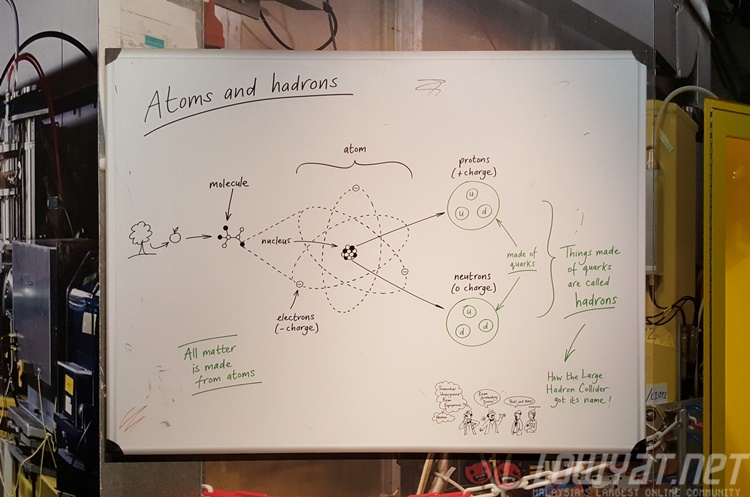 Atoms and hadrons
atom
molecule
nucleus
electrons
(−charge)
protons
(+charge)
u
u d
made of
quarks
neutrons
(0 charge)
u
d d
Things made
of quarks
are called
hadrons
How the Large
Hadron Collider
got its name!
All matter
is made
from atoms
LOWYAT.NET
MALAYSIA'S LARGEST ONLINE COMMUNITY